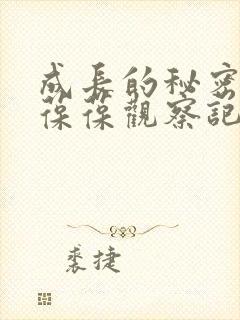 成長的秘密
葆葆觀察記
裘捷